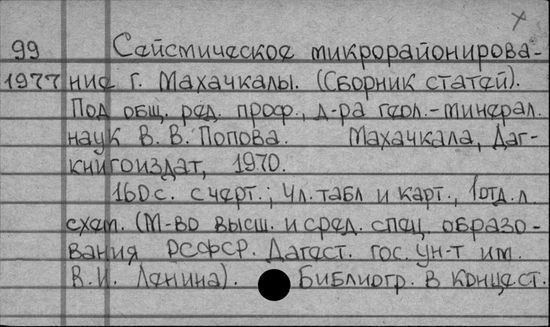 99 Сейсмическое микрорайонирова-
1977 ние г. Махачкалы. (Сборник статей).
Под общ. ред. проф., д-ра геол.-минерал.
наук В. В. Попова. Махачкала, Даг-
книгоиздат, 1970.
160 с. с черт.; 4 л. табл и карт., 1 отд. л.
схем. (М-во высш. и сред. спец образо-
вания РСФСР. Дагест. гос. ун-т им.
В.И. Ленина). Библиогр. в конце ст.